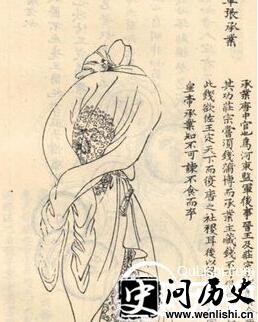 軍張承業
承業唐中官也為河東監軍後事晉王及莊宗
其功莊宗嘗須錢蒲博而承業主藏錢不
此幾欲佐王定天下而復唐之社稷耳後以
皇帝承業知不可諫不食而卒
问历史
www.wenlishi.cn